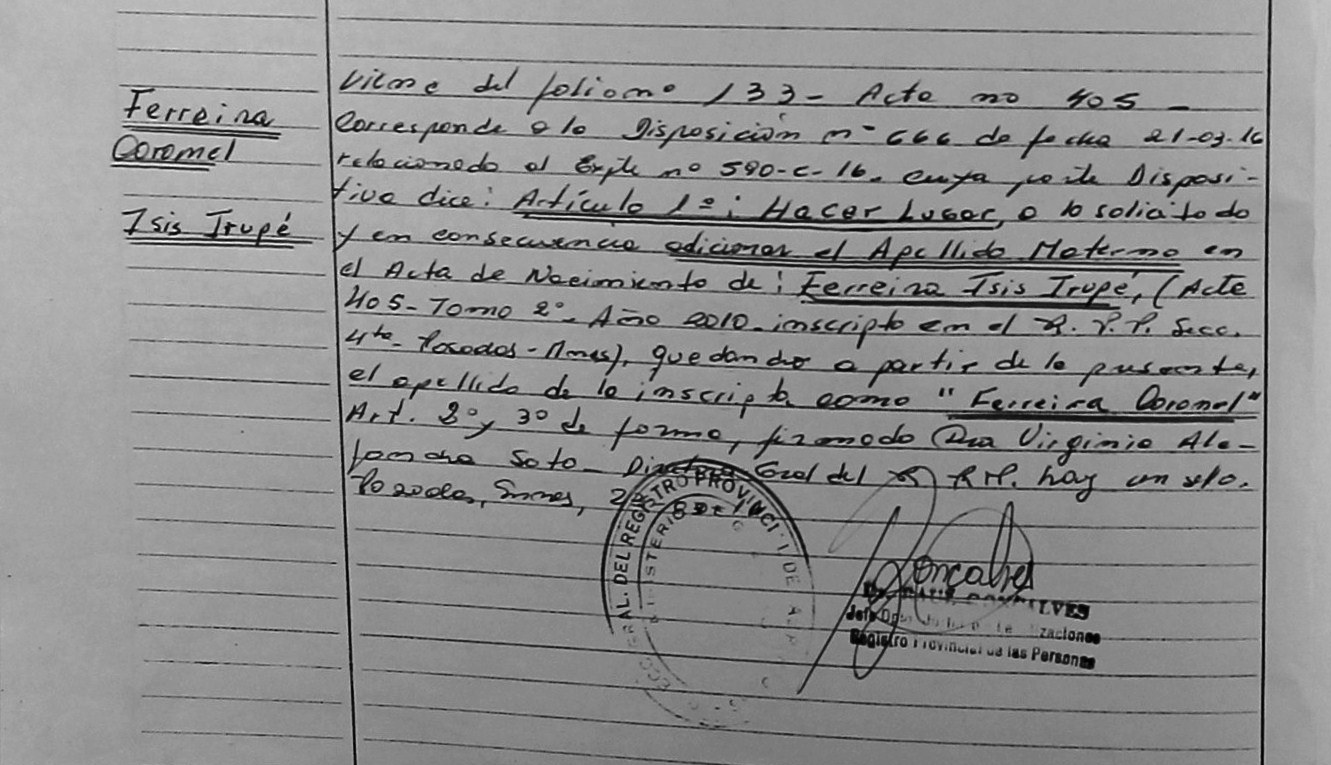 Ferreira
Coronel
Isis Irupé
Viene del folio no 133 - Acta no 405 -
Corresponde a la Disposición nº 666 de fecha 21-03-16
relacionado al Expte nº 590-C-16. cuya parte Disposi-
tiva dice: Artículo 1º: Hacer Lugar, a lo solicitado
y en consecuencia adicionar el Apellido Materno en
el Acta de Nacimiento de: Ferreira Isis Irupé, (Acta
405-Tomo 2º- Año 2010- inscripto en el R. P. P. Secc.
4ta- Posadas-Mnes), quedando a partir de la presente,
el apellido de la inscripta como "Ferreira Coronel"
Art. 2º y 3º de forma, firmado Dra Virginia Ale-
jandra Soto - Directora Gral del R.P. hay un sello.
Posadas, Mnes,
AL. DEL REGISTRO PROVINCI
DE
Goncalves
Registro Provincial de las Personas